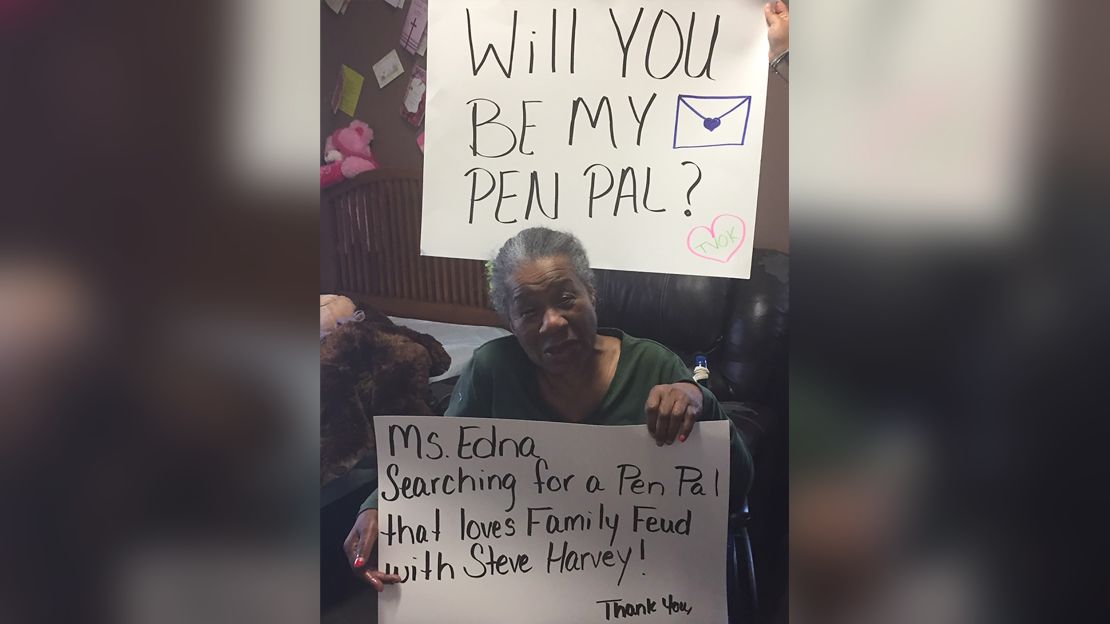 Will YOU
BE MY
PEN PAL?
TVOK
Ms. Edna
Searching for a Pen Pal
that loves Family Feud
with Steve Harvey!
Thank You,